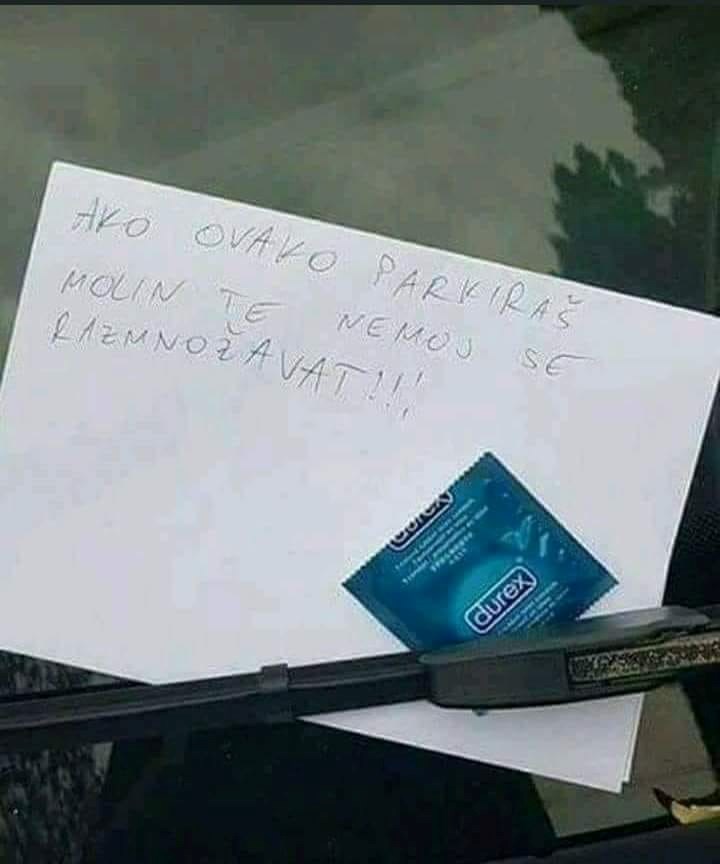 AKO OVAKO PARKIRAŠ
MOLIN TE NEMOJ SE
RAZMNOŽAVAT!!!
durex
durex